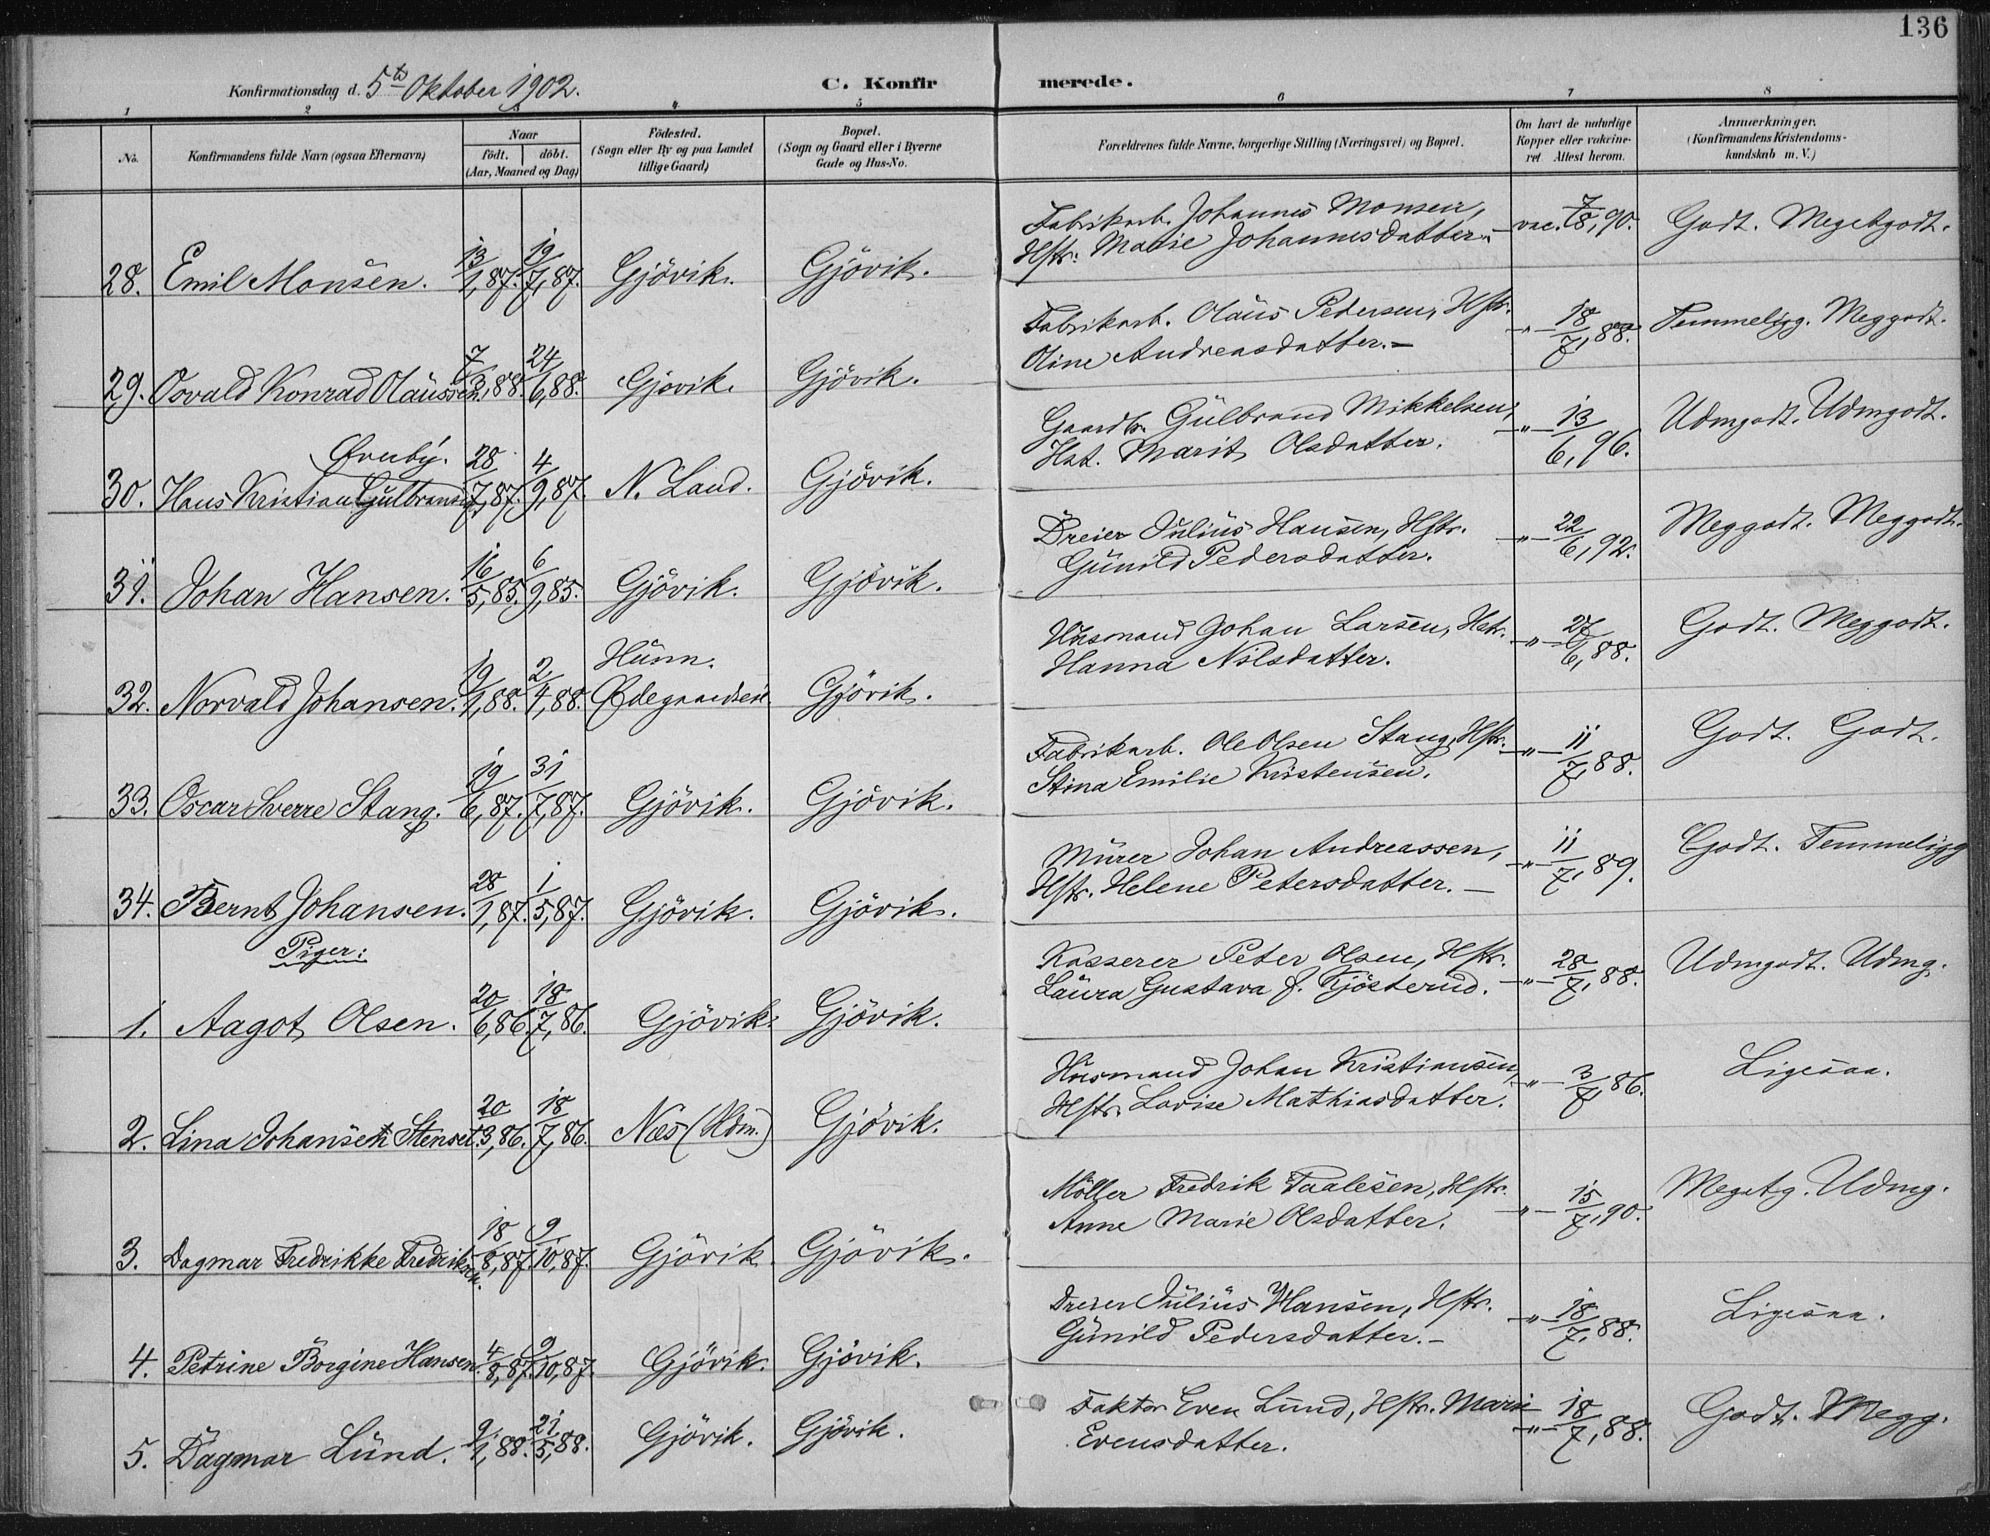 136
Konfirmationsdag d. 5te Oktober 1902.
C. Konfirmerede.
1 2 3 4 5 6 7 8
No.
Konfirmandens fulde Navn (ogsaa Efternavn)
Naar
födt. döbt.
(Aar, Maaned og Dag)
Födested.
(Sogn eller By og paa Landet
tillige Gaard)
Bopæl.
(Sogn og Gaard eller i Byerne
Gade og Hus-No.
Forældrenes fulde Navne, borgerlige Stilling (Næringsvei) og Bopæl.
Om havt de naturlige
Kopper eller vakcine-
ret Attest herom.
Anmærkninger.
(Konfirmandens Kristendoms-
kundskab m. V.)
28. Emil Monsen. 13/1,87. 19/7,87. Gjövik. Gjövik.
Fabrikarb. Johannes Monsen,
Hstr. Marie Johannesdatter. vac. 7/8,90. Godt. Megetgodt.
29. Osvald Konrad Olaussen. 7/3,88. 24/6,88. Gjövik. Gjövik.
Fabrikarb. Olaus Pedersen, Hstr.
Oline Andreasdatter. – -"- 18/7,88. Temmeligg. Meggodt.
Øvruby.
30. Hans Kristian Gulbrandsen 28/7,87. 4/9,87. N. Land. Gjövik.
Gaardbr. Gulbrand Mikkelsen,
Hst. Marit Olsdatter. -"- 13/6,96. Udmgodt. Udmgodt.
31. Johan Hansen. 16/5,85. 6/9,85. Gjövik. Gjövik.
Dreier Julius Hansen, Hstr.
Gunild Pedersdatter. -"- 22/6,92. Meggodt. Meggodt.
Hunn.
32. Norvald Johansen. 19/1,88. 2/4,88. Ødegaardseie Gjövik.
Husmand Johan Larsen, Hstr.
Hanna Nilsdatter. -"- 27/6,88. Godt. Meggodt.
33. Oscar Sverre Stang. 19/6,87. 31/7,87. Gjövik. Gjövik.
Fabrikarb. Ole Olsen Stang, Hstr.
Stina Emilie Kristensen. -"- 11/7,88. Godt. Godt.
34. Bernt Johansen. 28/1,87. 1/5,87. Gjövik. Gjövik.
Murer Johan Andreassen,
Hstr. Helene Petersdatter. – -"- 11/7,89. Godt. Temmeligg
Piger:
1. Aagot Olsen. 20/6,86. 18/7,86. Gjövik. Gjövik.
Kasserer Peter Olsen, Hstr.
Laura Gustava f. Kjösterud. -"- 28/7,88. Udmgodt. Udmg.
2. Lina Johansen Stenset. 20/3,86. 18/7,86. Næs (Hdm.) Gjövik.
Husmand Johan Kristiansen,
Hstr. Lovise Mathiasdatter. -"- 3/7,86. Ligesaa.
3. Dagmar Fredrikke Fredriksen. 18/8,87. 9/10,87. Gjövik. Gjövik.
Möller Fredrik Taalesen, Hstr.
Anne Marie Olsdatter. -"- 15/7,90. Megetg. Udmg.
4. Petrine Borgine Hansen. 4/8,87. 9/10,87. Gjövik. Gjövik.
Dreier Julius Hansen, Hstr.
Gunild Pedersdatter. – -"- 18/7,88. Ligesaa.
5. Dagmar Lund. 9/1,88. 21/5,88. Gjövik. Gjövik.
Faktor Even Lund, Hstr. Marie
Evensdatter. -"- 18/7,88. Godt. Megg.